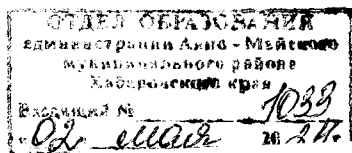 ОТДЕЛ ОБРАЗОВАНИЯ
администрации Аяно - Майского
муниципального района
Хабаровского края
Входящий № 1033
« 02 » мая 20